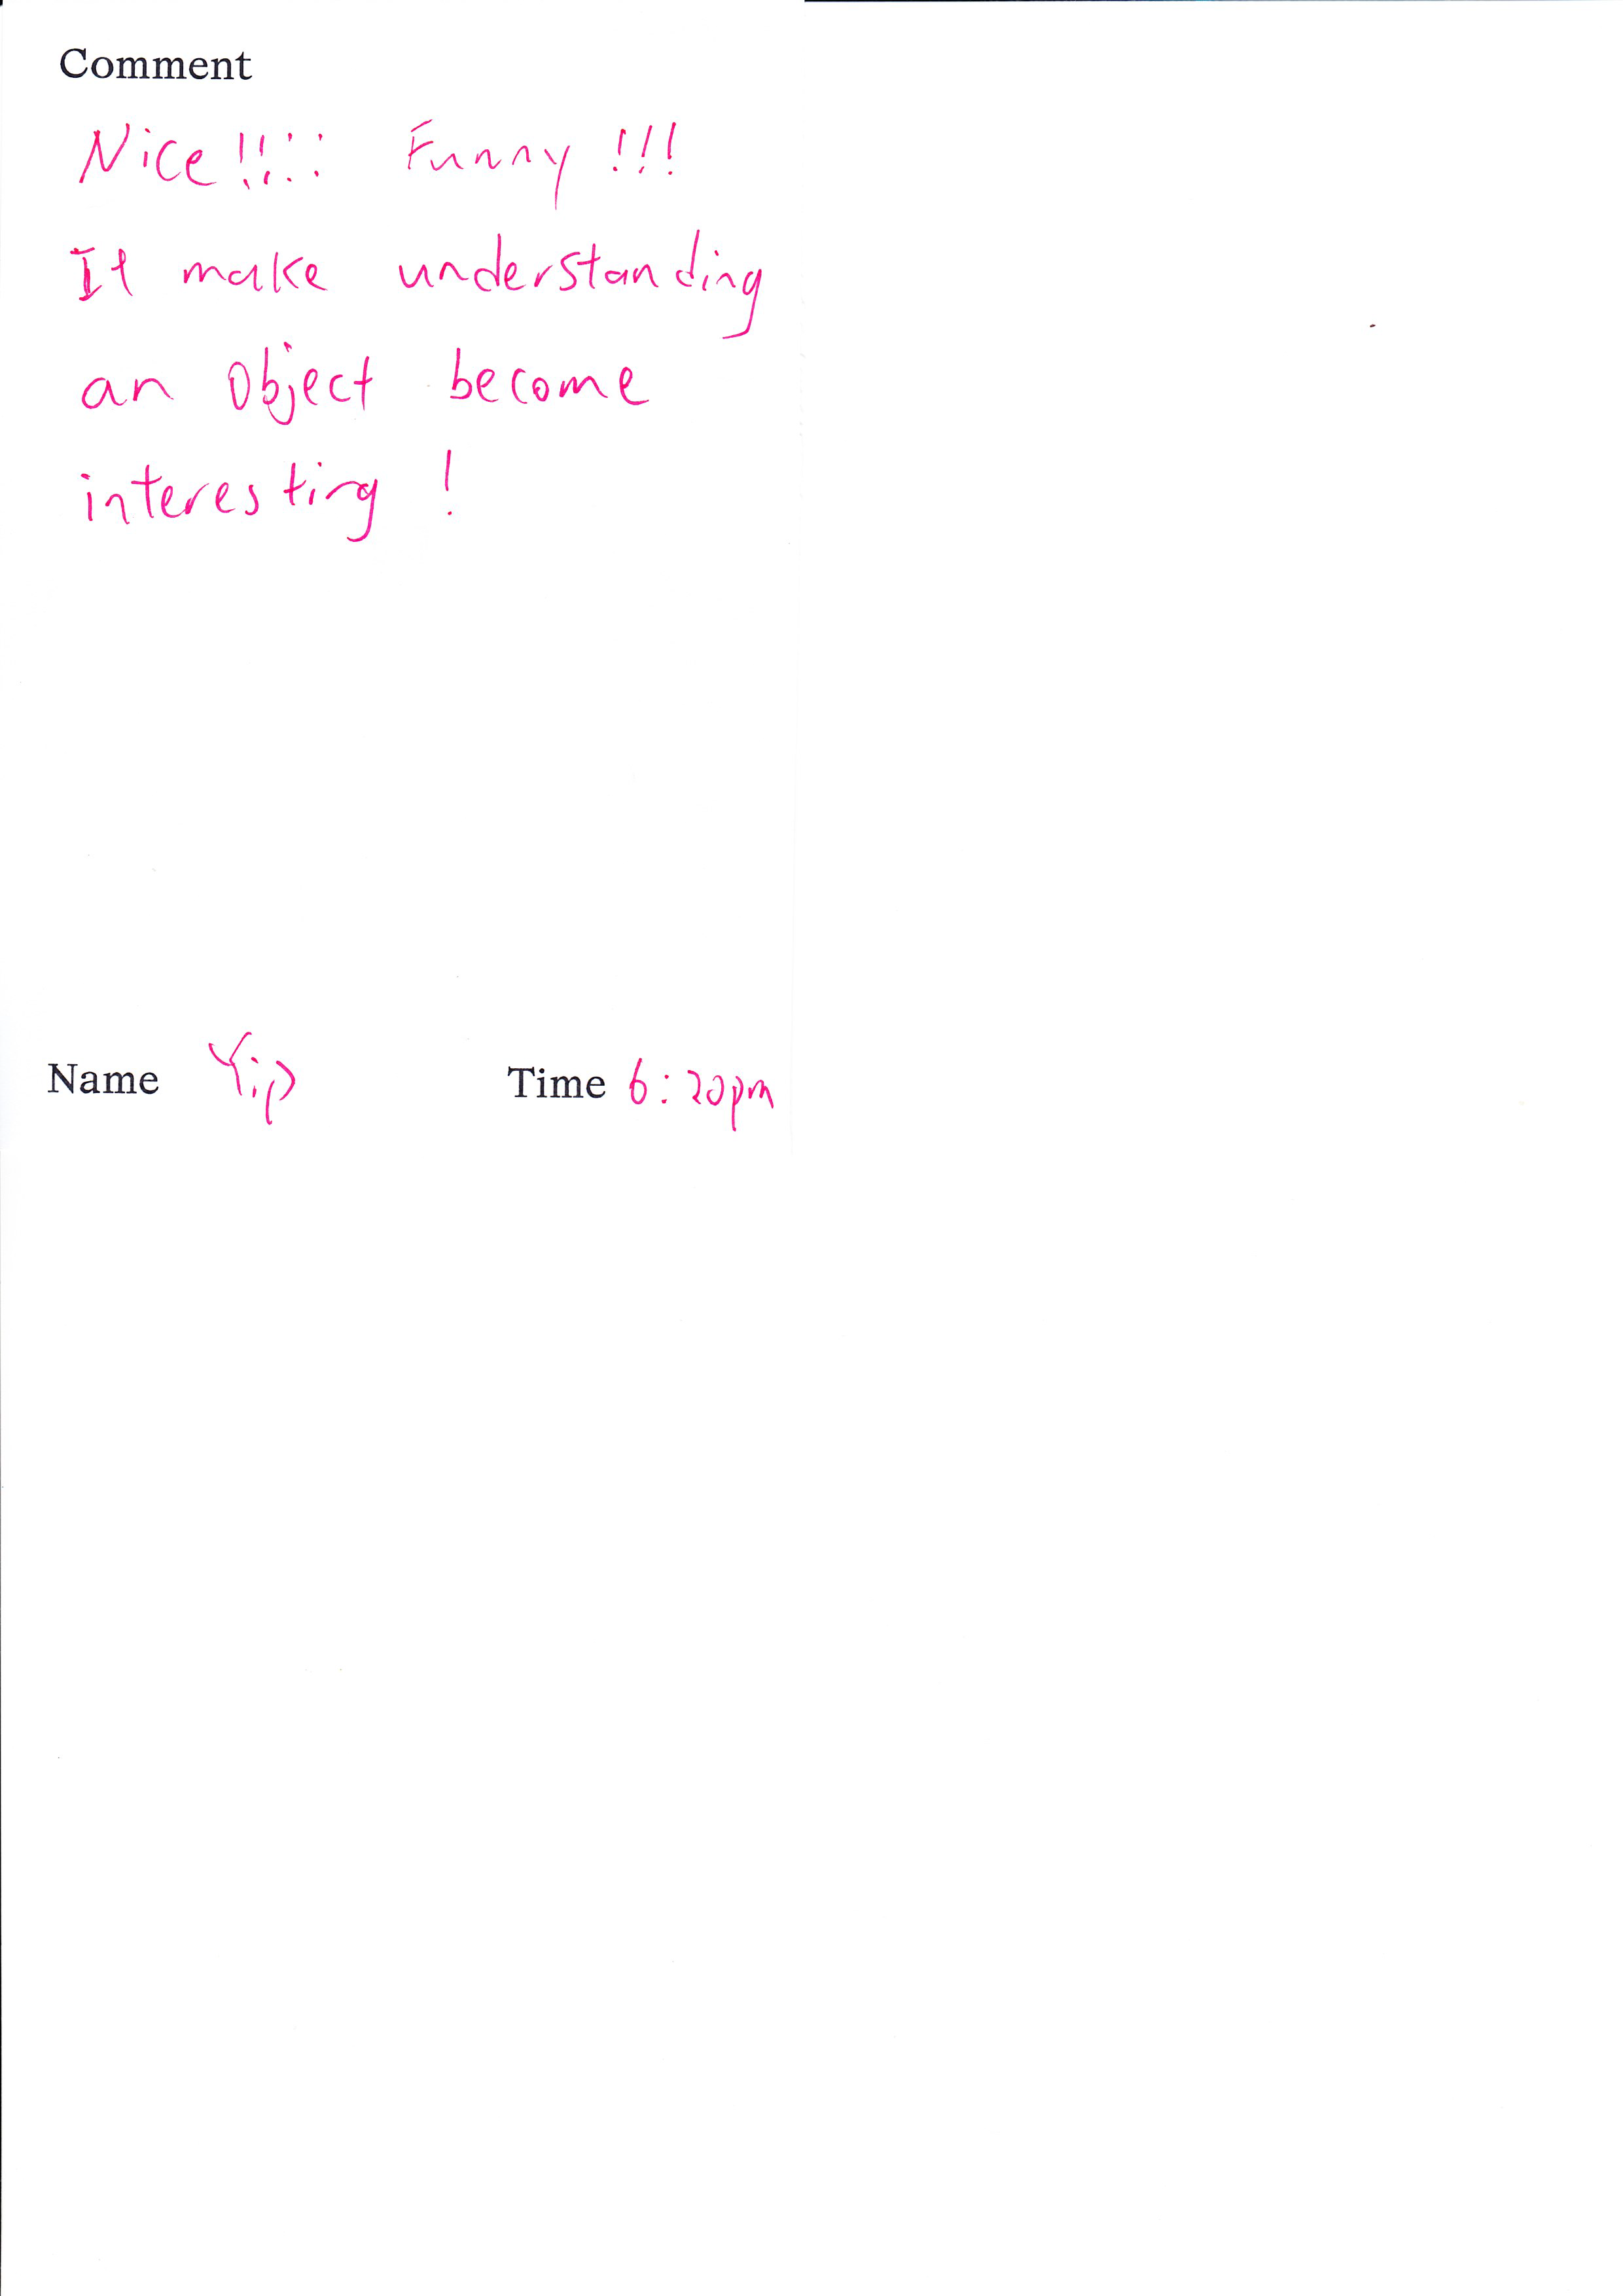 Comment
Nice!!!!! Funny !!!
It make understanding
an Object become
interesting !
Name Yip Time 6:20pm